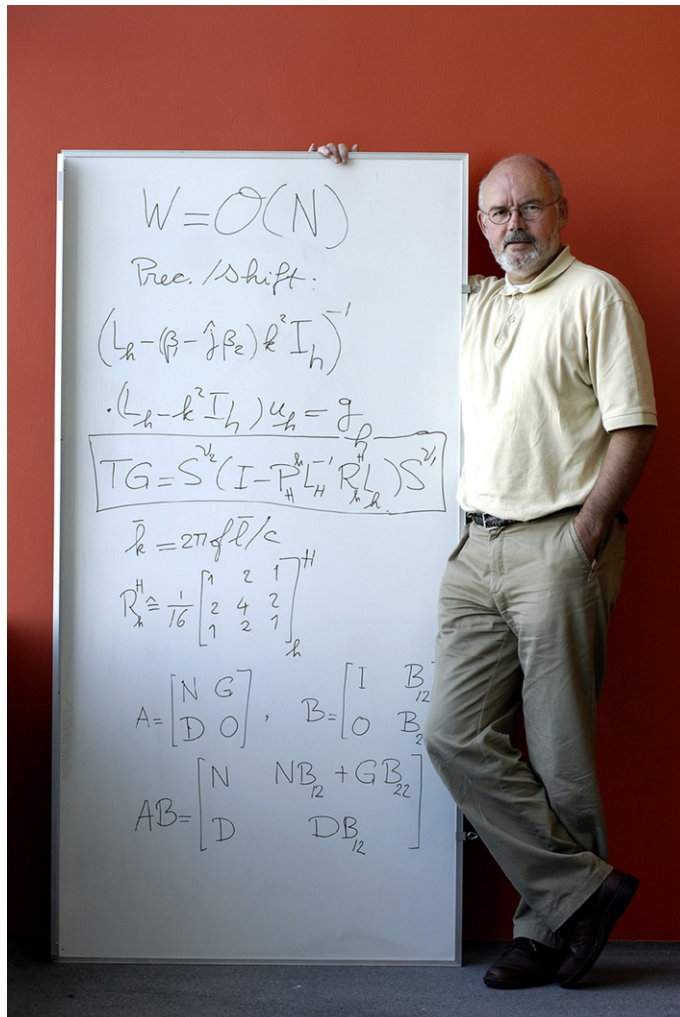 W = O(N)
Prec. / shift:
(L_h - (β_1 - ĵβ_2) k² I_h)⁻¹
·(L_h - k² I_h) u_h = g_h
TG = S^ν₂ (I - P_H^h L_H⁻¹ R_h^H L_h) S^ν₁
k̄ = 2πf l̄/c
R_h^H ≙ 1/16 [1 2 1
2 4 2
1 2 1]_h^H
A = [N G
D O], B = [I B_12
O B_2
AB = [N NB_12 + GB_22
D DB_12]